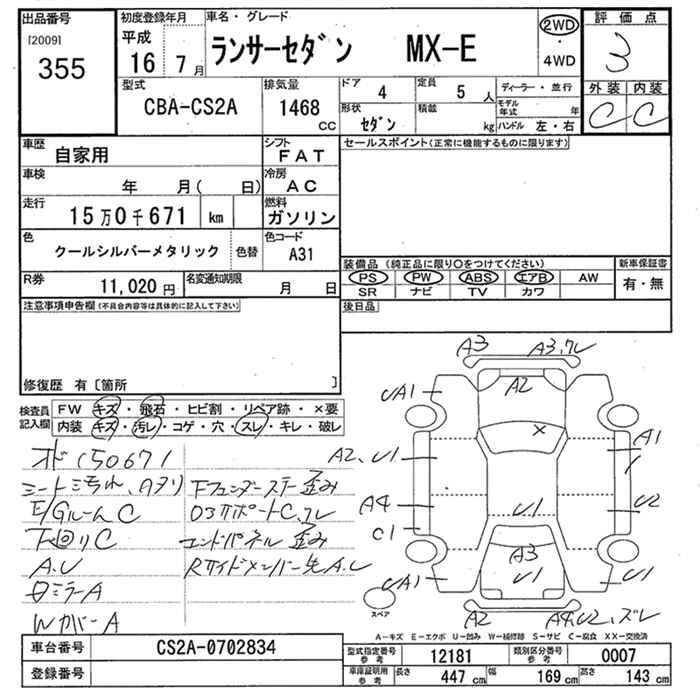 出品番号 初度登録年月 車名・グレード 評価点
[2009] 355 平成 16 7月 ランサーセダン MX-E 2WD・4WD 3
型式 排気量 ドア 4 定員 5人 ディーラー・並行 外装 内装
CBA-CS2A 1468 CC 形状 セダン 積載 kg モデル年式 年 ハンドル 左・右 C C
車歴 自家用 シフト FAT セールスポイント(正常に機能するものに限ります)
車検 年 月( 日) 冷房 AC
走行 15万0千671 km 燃料 ガソリン
色 クールシルバーメタリック 色替 色コード A31
装備品(純正品に限り○をつけてください) 新車保証書
PS PW ABS エアB AW 有・無
SR ナビ TV カワ
R券 11,020円 名変通知期限 月 日
後日品
注意事項申告欄(不具合内容等は具体的に記入して下さい)
修復歴 有〔箇所 〕
検査員記入欄 FW キズ・飛石・ヒビ割・リペア跡・×要
内装 キズ・汚レ・コゲ・穴・スレ・キレ・破レ
150671
シート汚れ、Aアリ
E/GルームC
下回りC
A.U
ミラーA
WカバーA
Fフェンダーステー歪み
サポートC、ズレ
エンドパネル歪み
Rサイドメンバー先A.U
A3 A3,ズレ
UA1 A2
×
A2、U1 A1
A4 U1 U2
C1
A3
UA1 U1 U1
スペア
A2 A4,U2、ズレ
A－キズ E－エクボ U－凹み W－補修跡 S－サビ C－腐食 XX－交換済
車台番号 CS2A-0702834
登録番号
型式指定番号参考 12181 類別区分番号参考 0007
車庫証明用参考 長さ 447cm 幅 169cm 高さ 143cm